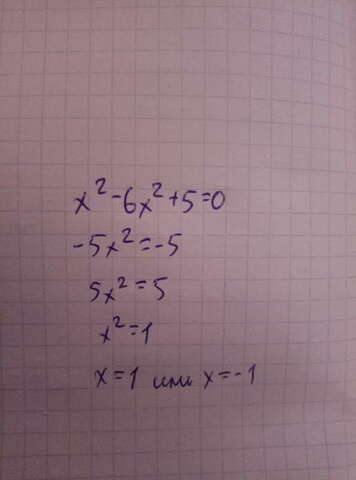 x²-6x²+5=0
-5x²=-5
5x²=5
x²=1
x=1 или x=-1